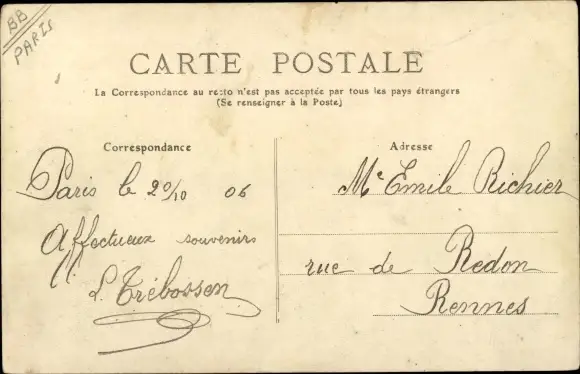 BB
PARIS
CARTE POSTALE
La Correspondance au recto n'est pas acceptée par tous les pays étrangers
(Se renseigner à la Poste)
Correspondance
Paris le 20/10 06
Affectueux souvenirs
L. Trébossen
Adresse
Mr Emile Richier
rue de Redon
Rennes